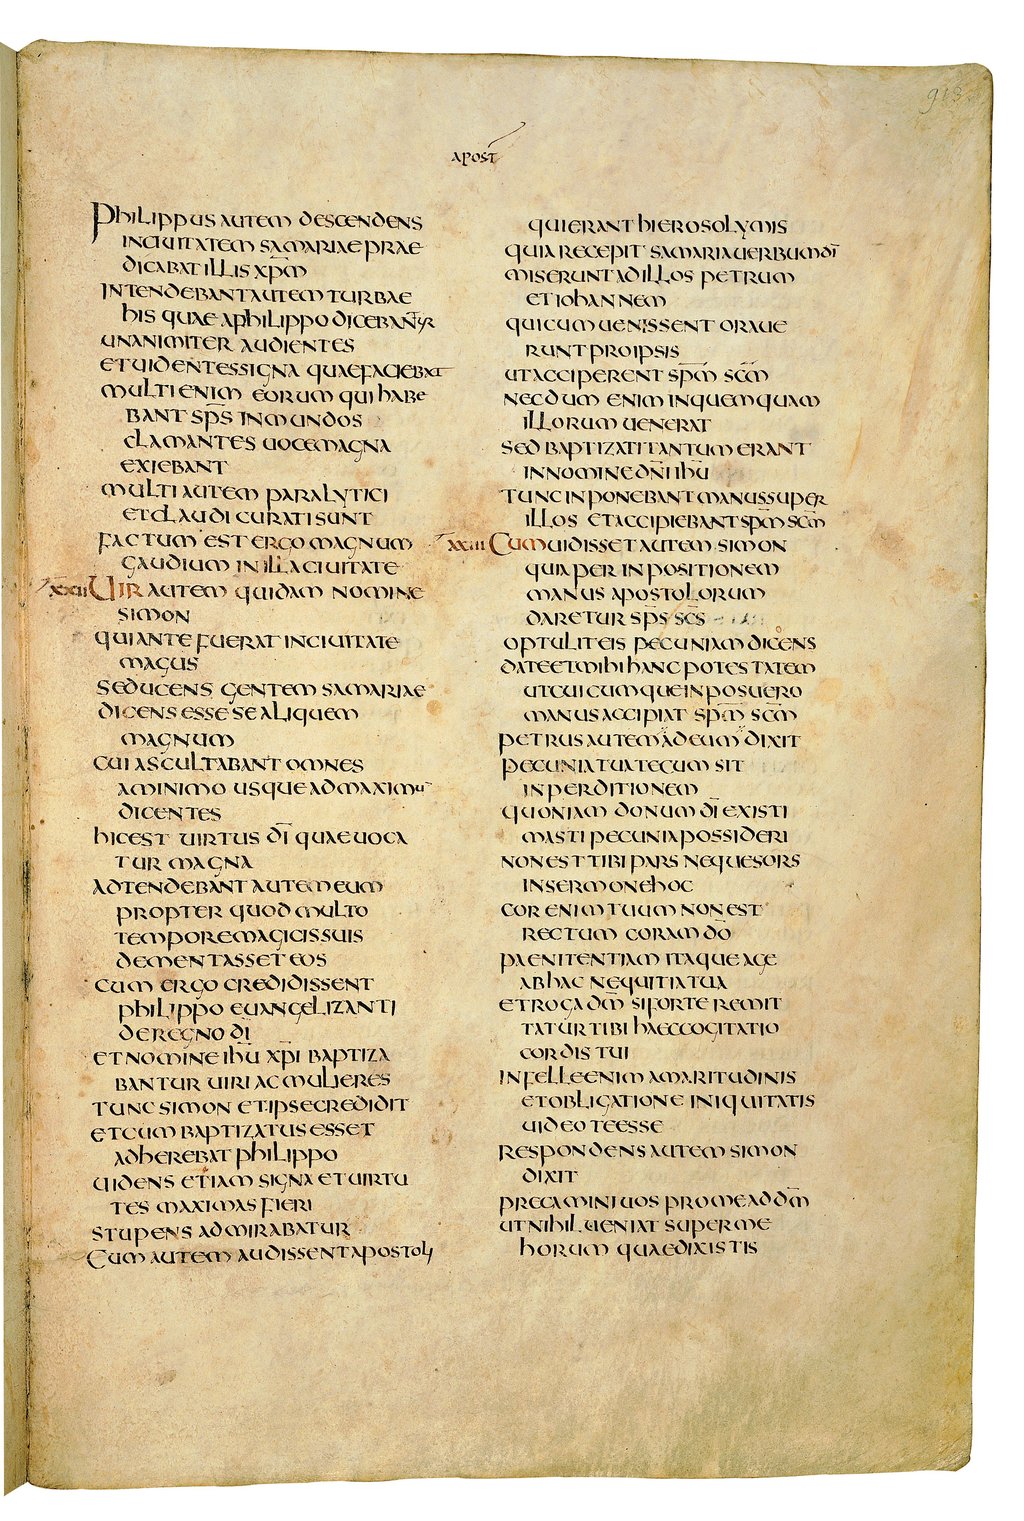 913
APOST
PHILIPPUS AUTEM DESCENDENS
IN CIUITATEM SAMARIAE PRAE
DICABAT ILLIS XP̅M
INTENDEBANT AUTEM TURBAE
HIS QUAE A PHILIPPO DICEBANTUR
UNANIMITER AUDIENTES
ET UIDENTES SIGNA QUAE FACIEBAT
MULTI ENIM EORUM QUI HABE
BANT SP̅S INMUNDOS
CLAMANTES UOCE MAGNA
EXIEBANT
MULTI AUTEM PARALYTICI
ET CLAUDI CURATI SUNT
FACTUM EST ERGO MAGNUM
GAUDIUM IN ILLA CIUITATE
XXII UIR AUTEM QUIDAM NOMINE
SIMON
QUI ANTE FUERAT IN CIUITATE
MAGUS
SEDUCENS GENTEM SAMARIAE
DICENS ESSE SE ALIQUEM
MAGNUM
CUI ASCULTABANT OMNES
A MINIMO USQUE AD MAXIMU̅
DICENTES
HIC EST UIRTUS D̅I QUAE UOCA
TUR MAGNA
ADTENDEBANT AUTEM EUM
PROPTER QUOD MULTO
TEMPORE MAGICIS SUIS
DEMENTASSET EOS
CUM ERGO CREDIDISSENT
PHILIPPO EUANGELIZANTI
DE REGNO D̅I
ET NOMINE IH̅U XP̅I BAPTIZA
BANTUR UIRI AC MULIERES
TUNC SIMON ET IPSE CREDIDIT
ET CUM BAPTIZATUS ESSET
ADHEREBAT PHILIPPO
UIDENS ETIAM SIGNA ET UIRTU
TES MAXIMAS FIERI
STUPENS ADMIRABATUR
CUM AUTEM AUDISSENT APOSTOLI
QUI ERANT HIEROSOLYMIS
QUIA RECEPIT SAMARIA UERBUM D̅I
MISERUNT AD ILLOS PETRUM
ET IOHANNEM
QUI CUM UENISSENT ORAUE
RUNT PRO IPSIS
UT ACCIPERENT SP̅M SC̅M
NECDUM ENIM IN QUEMQUAM
ILLORUM UENERAT
SED BAPTIZATI TANTUM ERANT
IN NOMINE DN̅I IH̅U
TUNC INPONEBANT MANUS SUPER
ILLOS ET ACCIPIEBANT SP̅M SC̅M
XXIII CUM UIDISSET AUTEM SIMON
QUIA PER INPOSITIONEM
MANUS APOSTOLORUM
DARETUR SP̅S SC̅S
OPTULIT EIS PECUNIAM DICENS
DATE ET MIHI HANC POTESTATEM
UT CUICUMQUE INPOSUERO
MANUS ACCIPIAT SP̅M SC̅M
PETRUS AUTEM AD EUM DIXIT
PECUNIA TUA TECUM SIT
IN PERDITIONEM
QUONIAM DONUM D̅I EXISTI
MASTI PECUNIA POSSIDERI
NON EST TIBI PARS NEQUE SORS
IN SERMONE HOC
COR ENIM TUUM NON EST
RECTUM CORAM D̅O
PAENITENTIAM ITAQUE AGE
AB HAC NEQUITIA TUA
ET ROGA D̅M SI FORTE REMIT
TATUR TIBI HAEC COGITATIO
CORDIS TUI
IN FELLE ENIM AMARITUDINIS
ET OBLIGATIONE INIQUITATIS
UIDEO TE ESSE
RESPONDENS AUTEM SIMON
DIXIT
PRECAMINI UOS PRO ME AD D̅M
UT NIHIL UENIAT SUPER ME
HORUM QUAE DIXISTIS